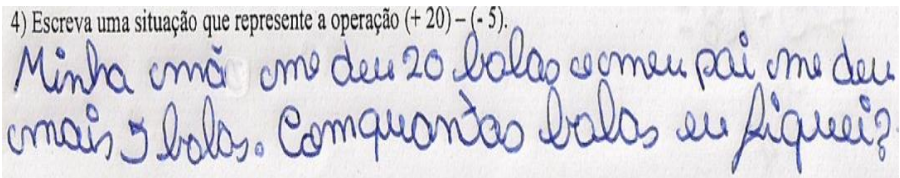 4) Escreva uma situação que represente a operação (+ 20) – (- 5).
Minha mã me deu 20 balas e meu pai me deu
mais 5 balas. Com quantas balas eu fiquei?